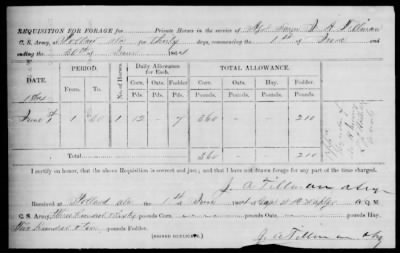 REQUISITION FOR FORAGE for Private Horses in the service of Asst Surgn J A Tillman
C. S. Army, at Pollard Ala for Thirty days, commencing the 1st of June
and ending the 30th of June 1864
DATE.
PERIOD.
No. of Horses.
Daily Allowance for Each.
TOTAL ALLOWANCE.
From.
To.
Corn. Fodder.
Corn.
Fodder.
Pds. Pds. Pds.
Pounds. Pounds. Pounds.
1864
June 1 30 1 12 - 7 360 - 210
Total 360 210
I certify on honor, that the above Requisition is correct and just; and that I have not drawn forage for any part of the time charged.
J. A Tillman A Surg
Received at Pollard Ala the 1st of June 1864 of Capt A.Q.M.
C. S. Army, Three hundred & Sixty pounds Corn pounds Oats pounds Hay,
Two hundred & Ten pounds Fodder.
[SIGNED DUPLICATE.]
J. A Tillman A Surg